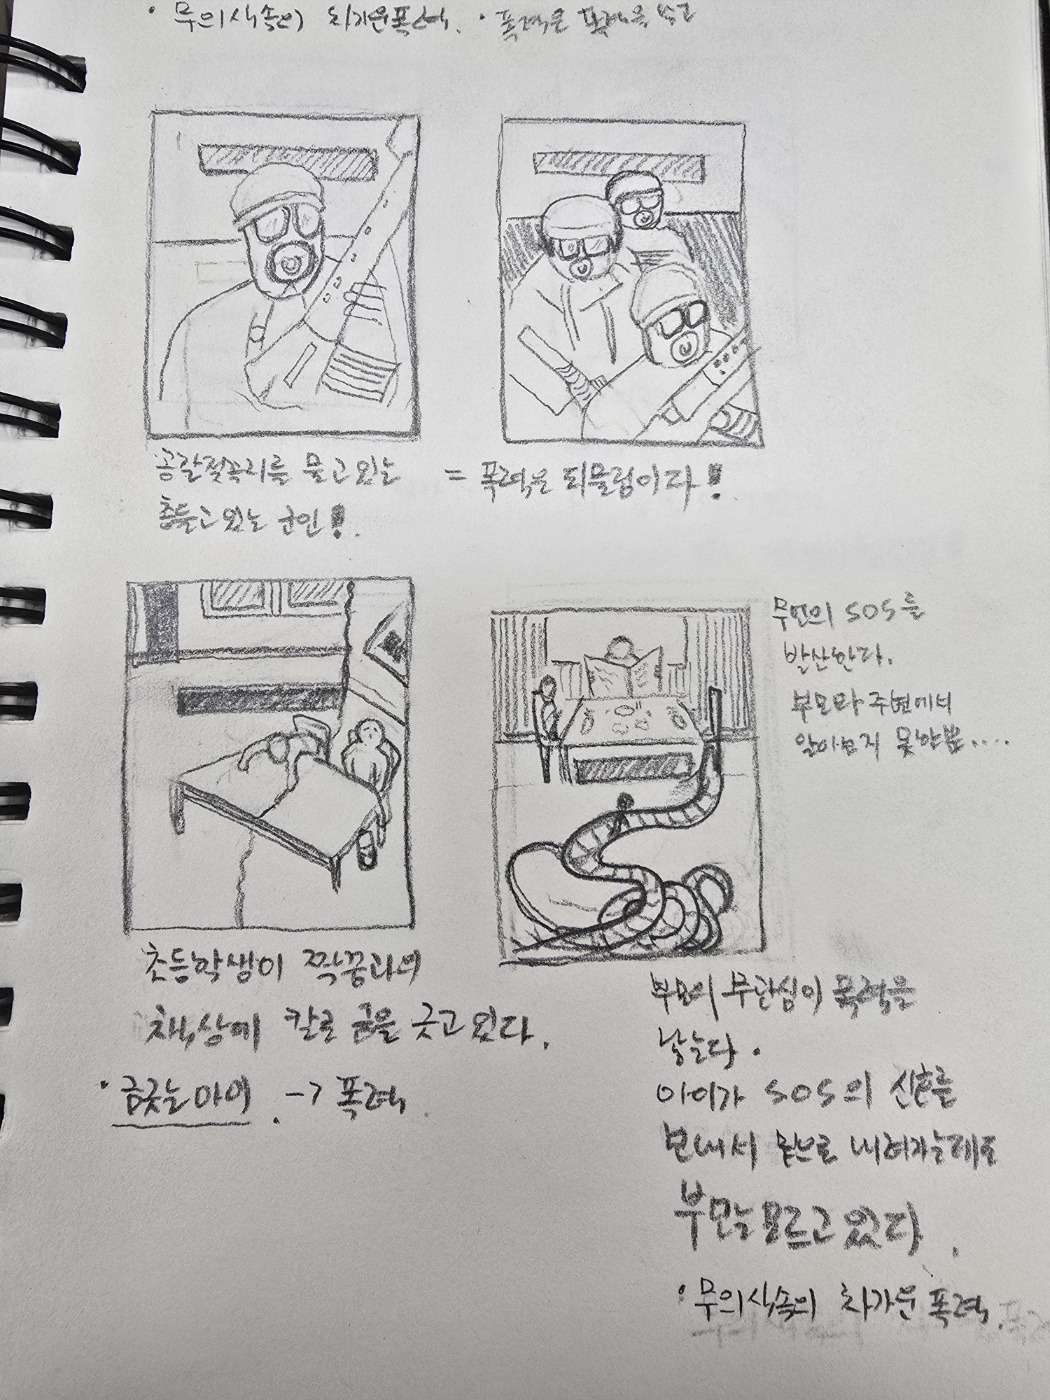 · 무의식속의 차가운폭력. · 폭력은 폭력을 낳고
공갈젖꼭지를 물고있는
총들고 있는 군인!.
= 폭력은 되물림이다!
무언의 SOS를
발산한다.
부모와 주변에서
알아보지 못할뿐....
초등학생이 짝꿍과의
책상에 칼로 금을 긋고있다.
· 금긋는아이. -> 폭력.
부모의 무관심이 폭력을
낳는다.
아이가 SOS의 신호를
보내서 밑으로 내려가는데도
부모는 모르고 있다.
· 무의식속의 차가운 폭력.